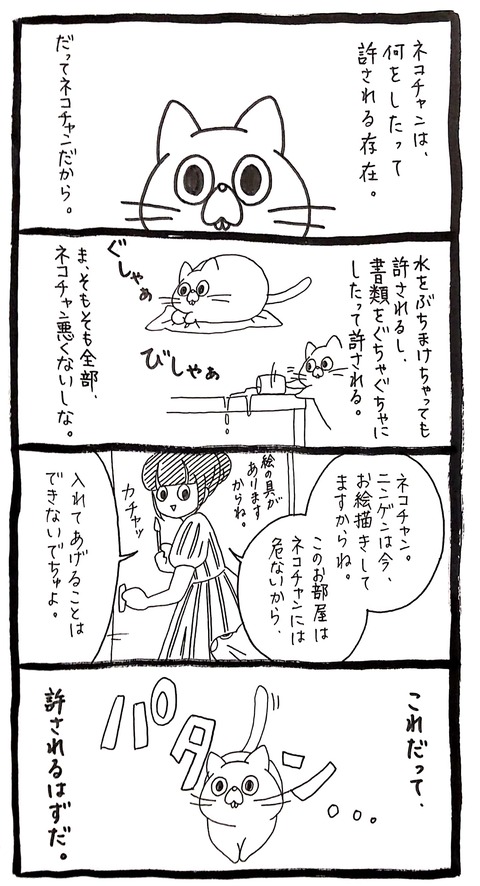 ネコチャンは、
何をしたって
許される存在。
だってネコチャンだから。
水をぶちまけちゃっても
許されるし、
書類をぐちゃぐちゃに
したって許される。
ぐしゃぁ
びしゃぁ
ま、そもそも全部、
ネコチャン悪くないしな。
ネコチャン。
ニンゲンは今、
お絵描きして
ますからね。
このお部屋は
ネコチャンには
危ないから、
絵の具が
あります
からね。
カチャッ
入れてあげることは
できないでちゅよ。
これだって、
パタン
。。。
許されるはずだ。